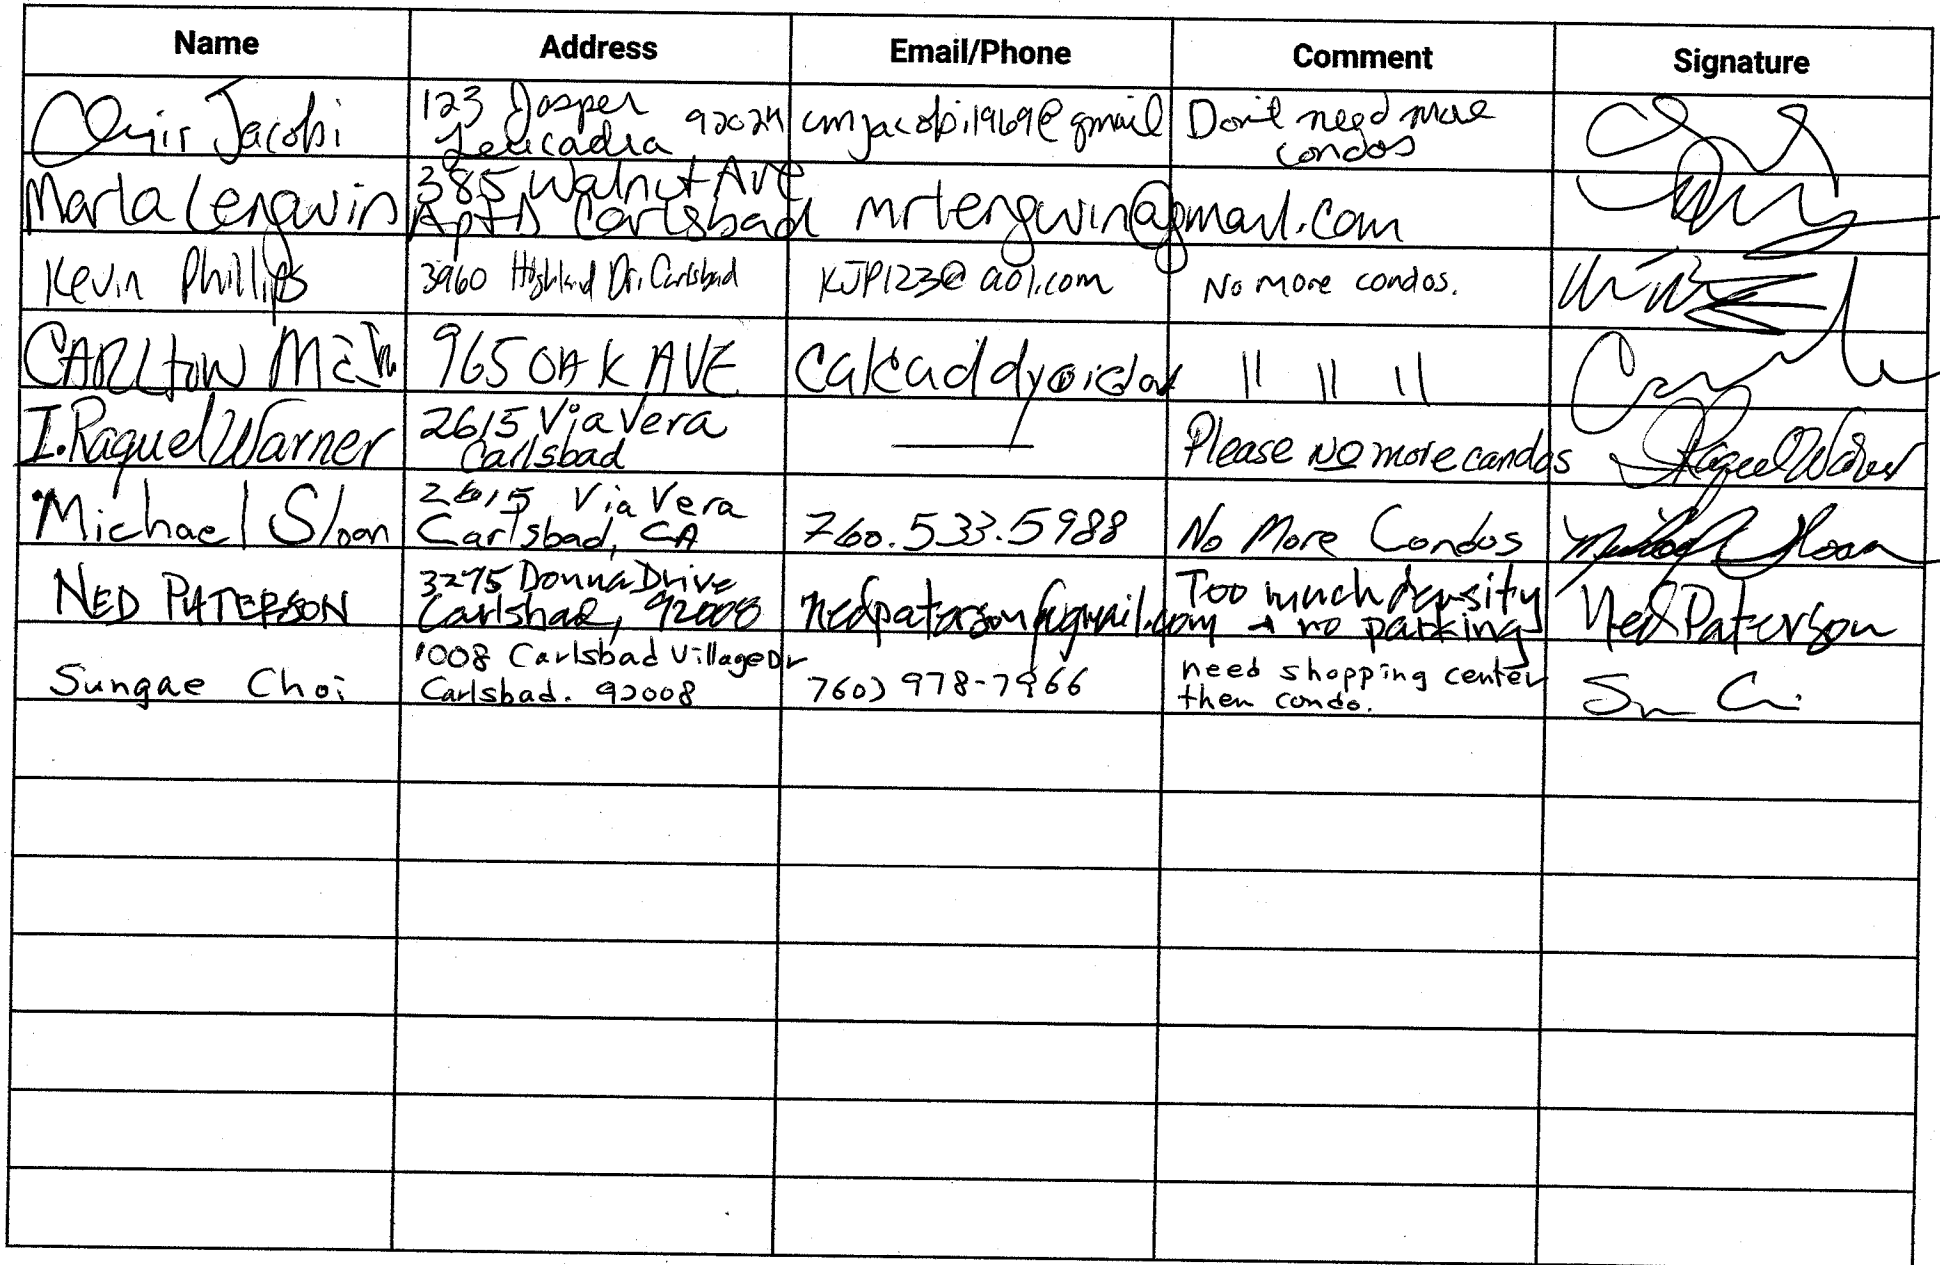 Name Address Email/Phone Comment Signature
Jacobi 123 Jasper Leucadia 92024 cmjacobi1969@gmail Don't need more condos
Marla Lengwin 385 Walnut Ave Apt D Carlsbad mrlengwin@gmail.com
Kevin Phillips 3960 Highland Dr. Carlsbad KJP123@aol.com No more condos.
CARLTON 965 OAK AVE " " "
I. Raquel Warner 2615 Via Vera Carlsbad — Please NO more condos Raquel Warner
Michael Sloan 2615 Via Vera Carlsbad, CA 760.533.5988 No More Condos Michael Sloan
NED PATERSON 3275 Donna Drive Carlsbad, 92008 nedpaterson@gmail.com Too much density + no parking Ned Paterson
Sungae Choi 1008 Carlsbad Village Dr Carlsbad. 92008 760) 978-7966 need shopping center then condo.